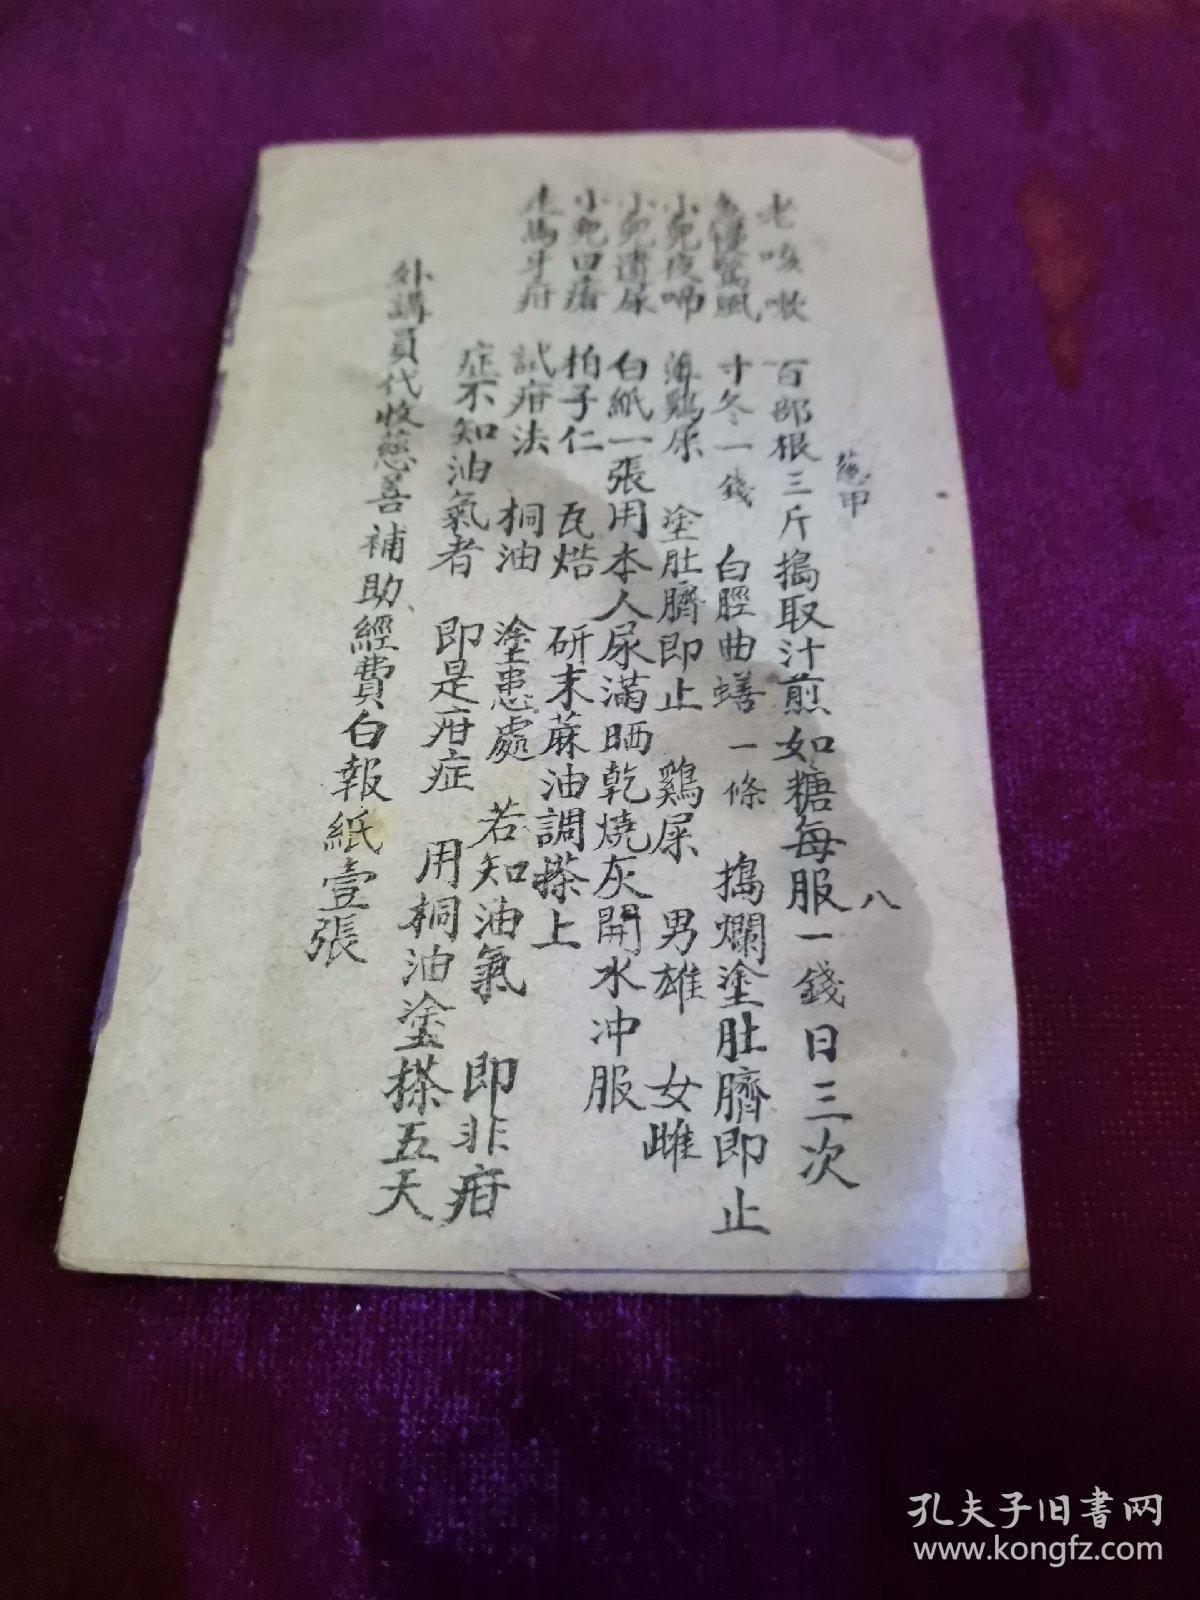 慈甲
八
老咳嗽 百部根三斤搗取汁煎如糖每服一錢日三次
急慢驚風 寸冬一錢 白脛曲蟮一條 搗爛塗肚臍即止
小兒夜啼 鷄屎 塗肚臍即止 鷄屎 男雄 女雌
小兒遺尿 白紙一張用本人尿滿晒乾燒灰開水冲服
小兒口瘡 柏子仁 瓦焅 研末蔴油調搽上
走馬牙疳 試疳法 桐油 塗患處 若知油氣 即非疳
症不知油氣者 即是疳症 用桐油塗搽五天
外講員代收慈善補助、經費白報紙壹張
孔夫子旧书网
www.kongfz.com